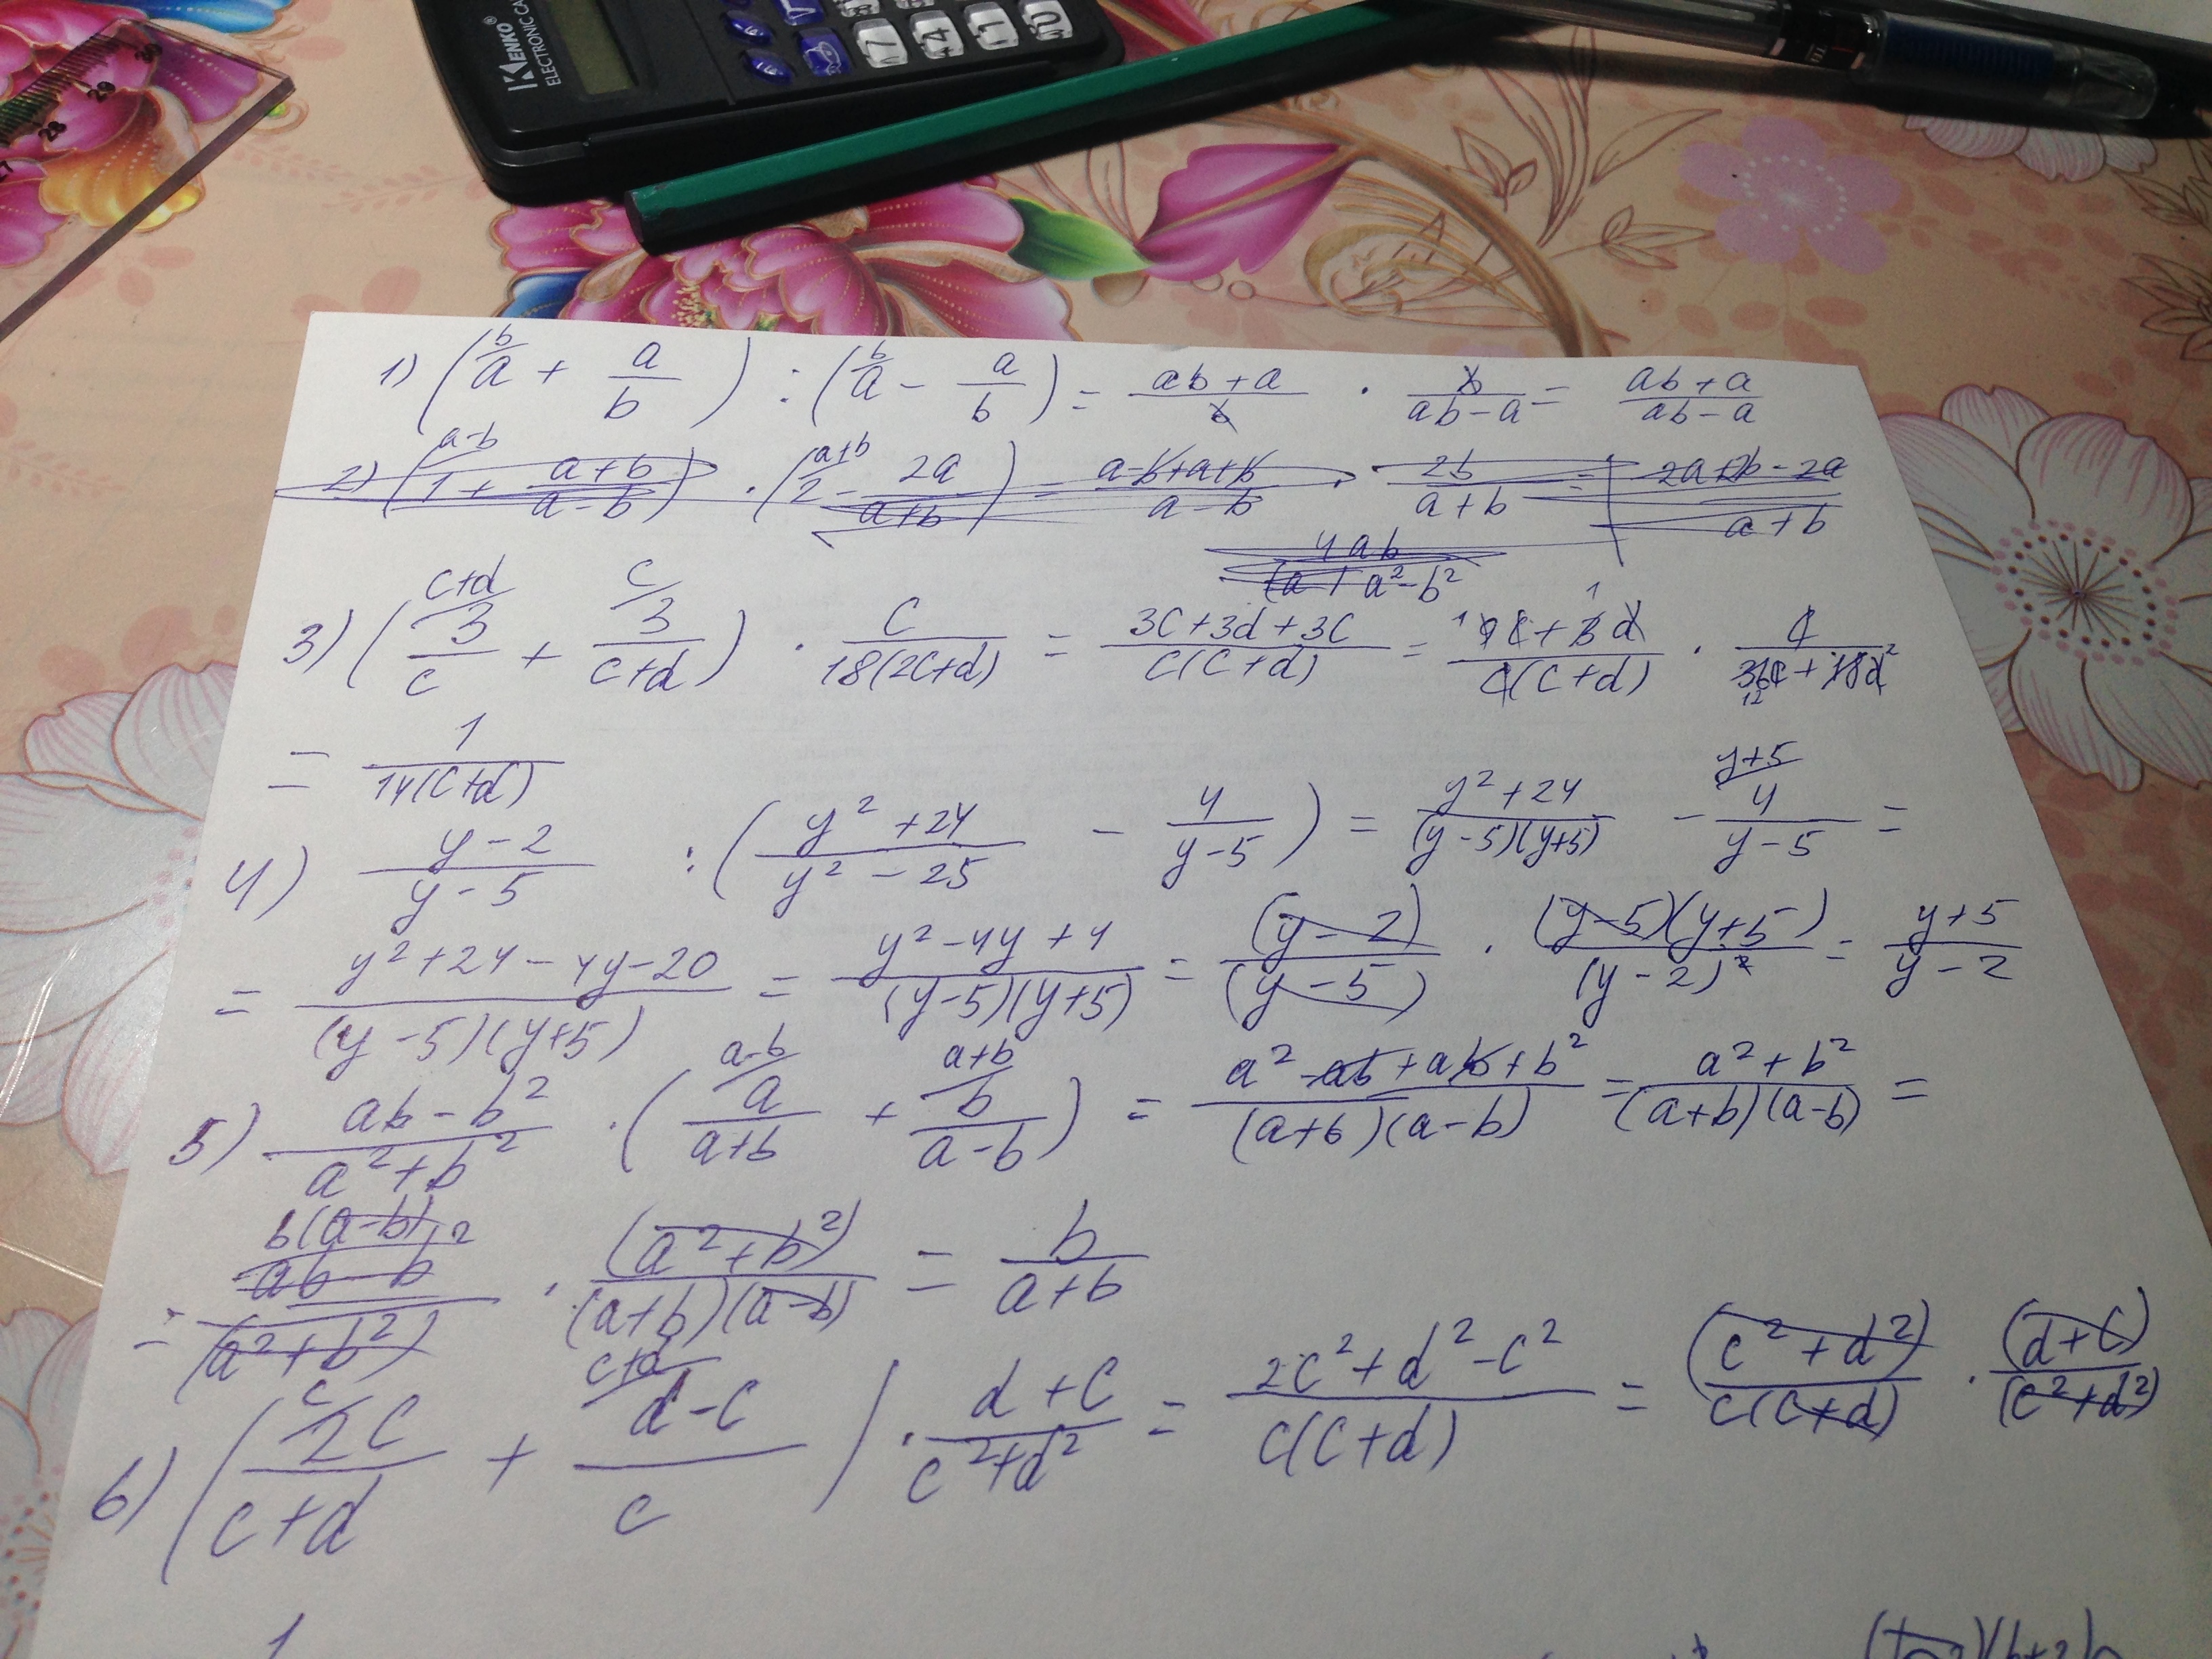 KENKO®
ELECTRONIC CA
28 29 30
1) (b/a + a/b) : (b/a - a/b) = (ab+a)/b · b/(ab-a) = (ab+a)/(ab-a)
2) (a-b/1 + (a+b)/(a-b)) · (a+b/2 - 2a/(a+b)) = (a-b+a+b)/(a-b) · 2b/(a+b) = | (2a+2b-2a)/(a+b)
4ab/(a+ a²-b²
3) (c+d/3/c + c/3/(c+d)) · c/18(2c+d) = (3c+3d+3c)/c(c+d) = (c+3d)/c(c+d) · c/(36c+18d)
= 1/14(c+d)
4) (y-2)/(y-5) : ((y²+24)/(y²-25) - 4/(y-5)) = (y²+24)/(y-5)(y+5) - y+5/4/(y-5) =
= (y²+24-4y-20)/(y-5)(y+5) = (y²-4y+4)/(y-5)(y+5) = (y-2)/(y-5) · (y-5)(y+5)/(y-2)² = (y+5)/(y-2)
5) (ab-b²)/(a²+b²) · (a-b/a/(a+b) + a+b/b/(a-b)) = (a²-ab+ab+b²)/(a+b)(a-b) = (a²+b²)/(a+b)(a-b) =
b(a-b)
= (ab-b²)/(a²+b²) · (a²+b²)/(a+b)(a-b) = b/(a+b)
6) (c/2c/(c+d) + c+d/d-c/c) · (d+c)/(c²+d²) = (2c²+d²-c²)/c(c+d) = (c²+d²)/c(c+d) · (d+c)/(c²+d²)
1